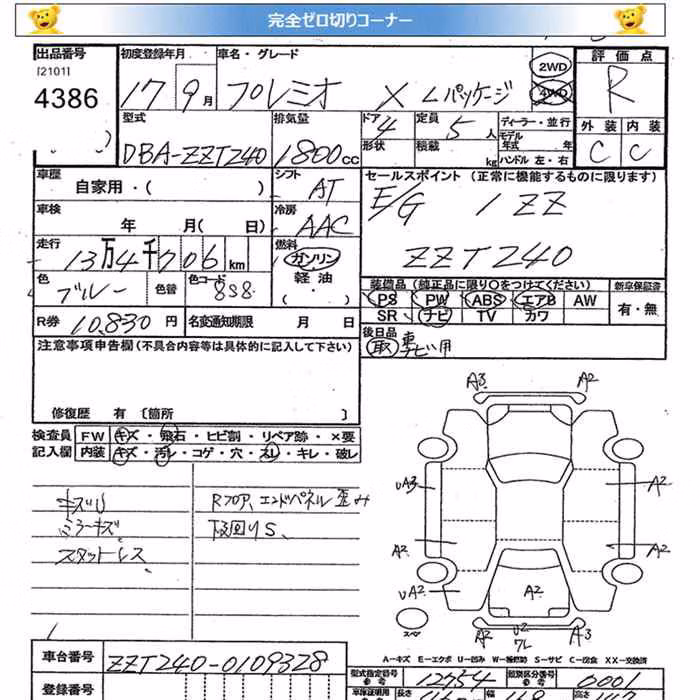 完全ゼロ切りコーナー
出品番号
[2101]
4386
初度登録年月
17 9月
車名・グレード
プレミオ X Lパッケージ
2WD
4WD
評価点
R
外装 内装
C C
型式
DBA-ZZT240
排気量
1800cc
ドア 4
形状
定員 5人
積載 kg
ディーラー・並行
モデル年式 年
ハンドル 左・右
車歴
自家用・( )
シフト
AT
セールスポイント (正常に機能するものに限ります)
E/G 1ZZ
ZZT240
車検
年 月( 日)
冷房
AAC
走行
13万4千706km
燃料
ガソリン
軽油
( ・ )
色
ブルー
色替
色コード
8S8
装備品 (純正品に限り○をつけてください)
PS PW ABS エアB AW
SR ナビ TV カワ
新車保証書
有・無
R券 10,830円
名変通知期限 月 日
後日品
取 ナビ用
注意事項申告欄(不具合内容等は具体的に記入して下さい)
修復歴 有 [箇所 ]
検査員
記入欄
FW キズ・飛石・ヒビ割・リペア跡・×要
内装 キズ・汚レ・コゲ・穴・スレ・キレ・破レ
キズU
ミラーキズ
スタットレス
Rフロア、エンドパネル歪み
下回りS、
A3 A2
UA3 A2
A2 A2
UA2 A2
A2 U2 A2
ワレ
スペア
A－キズ E－エクボ U－凹み W－補修跡 S－サビ C－腐食 XX－交換済
車台番号
ZZT240-0109328
登録番号
型式指定番号
参考
12754
類別区分番号
参考
0001
車庫証明用
長さ
幅
高さ